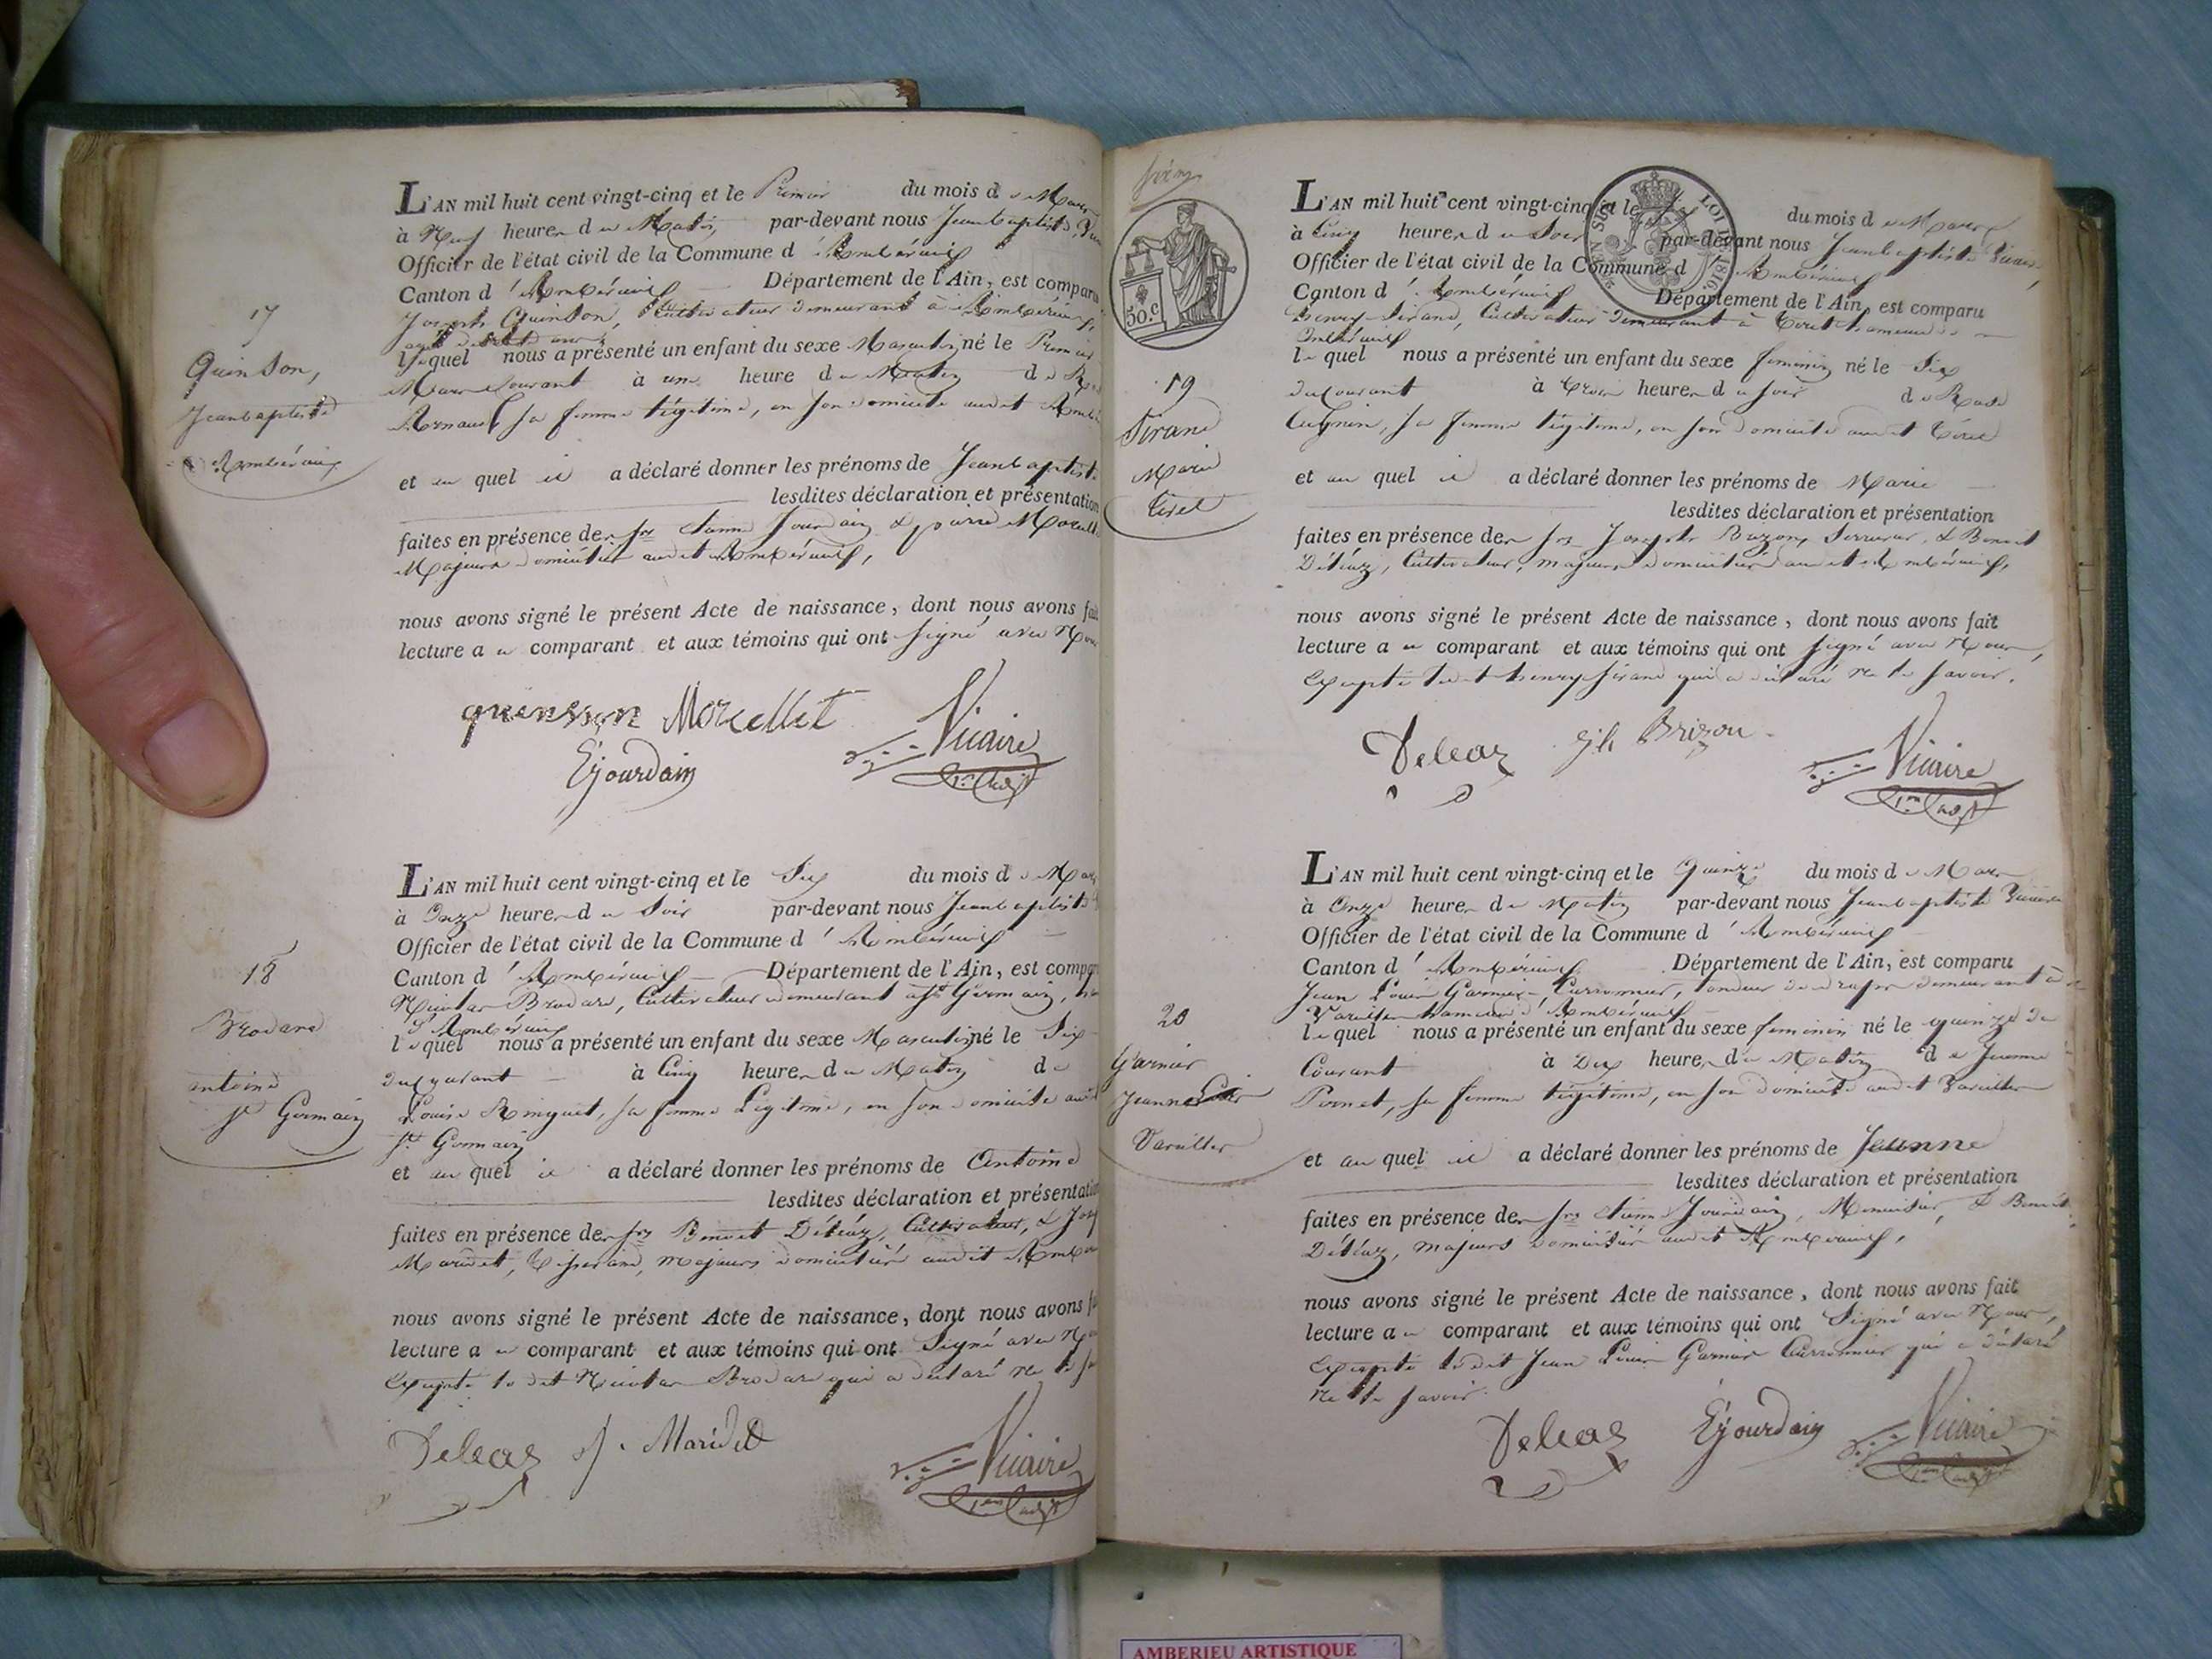 17
Quinson,
Jeanbaptiste
Ambérieux
L'AN mil huit cent vingt-cinq et le Premier du mois de Mars
à Neuf heures du Matin, par-devant nous Jeanbaptiste
Officier de l'état civil de la Commune d'Ambérieux
Canton d'Ambérieux Département de l'Ain, est comparu
Joseph Quinson, Cultivateur demeurant à Ambérieux,
lequel nous a présenté un enfant du sexe Masculin né le Premier
Mars Courant à une heure du Matin de
Arnaud, sa femme légitime, en son domicile audit
et au quel il a déclaré donner les prénoms de Jeanbaptiste
lesdites déclaration et présentation
faites en présence des Srs Etienne Jourdain & pierre Morcellet
Majeurs domiciliés audit Ambérieux,
nous avons signé le présent Acte de naissance, dont nous avons fait
lecture au comparant et aux témoins qui ont signé avec Nous
quinson Morcellet Vicaire
Ejourdain
18
Brodard
antoine
St Germain
L'AN mil huit cent vingt-cinq et le Six du mois de Mars
à Onze heures du Soir par-devant nous Jeanbaptiste
Officier de l'état civil de la Commune d'Ambérieux
Canton d'Ambérieux Département de l'Ain, est comparu
Nicolas Brodard, Cultivateur demeurant à St Germain,
d'Ambérieux
lequel nous a présenté un enfant du sexe Masculin né le Six
du Courant à Cinq heures du Matin de
Louise Ringuet, sa femme Légitime, en son domicile audit
St Germain
et au quel il a déclaré donner les prénoms de Antoine
lesdites déclaration et présentation
faites en présence des Srs Benoit Déléaz, Cultivateur, &
Maridet, Tisserand, majeurs domiciliés audit
nous avons signé le présent Acte de naissance, dont nous avons
lecture au comparant et aux témoins qui ont Signé avec
Excepté ledit Nicolas Brodard qui a déclaré ne le
Deleaz J. Maridet Vicaire
50.C
LOI DE 1816.
19
Sirand
Marie
Tiret
L'AN mil huit cent vingt-cinq et le Six du mois de Mars
à Cinq heures du Soir par-devant nous Jeanbaptiste Vicaire,
Officier de l'état civil de la Commune d'Ambérieux
Canton d'Ambérieux Département de l'Ain, est comparu
henry Sirand, Cultivateur demeurant à Tiret hameau
lequel nous a présenté un enfant du sexe féminin né le Six
du Courant à trois heures du soir de
sa femme légitime, en son domicile audit Tiret
et au quel il a déclaré donner les prénoms de Marie
lesdites déclaration et présentation
faites en présence des Srs Joseph Brizon, Serrurier, & Benoit
Déléaz, Cultivateur, majeurs domiciliés audit Ambérieux,
nous avons signé le présent Acte de naissance, dont nous avons fait
lecture au comparant et aux témoins qui ont signé avec Nous,
Excepté ledit henry Sirand qui a déclaré ne le savoir.
Deleaz Brizon Vicaire
20
Garnier
Jeanne
Vareilles
L'AN mil huit cent vingt-cinq et le quinze du mois de Mars
à Onze heures du Matin par-devant nous Jeanbaptiste Vicaire
Officier de l'état civil de la Commune d'Ambérieux
Canton d'Ambérieux Département de l'Ain, est comparu
Jean Louis Garnier, tondeur de draps demeurant à
Vareilles hameau d'Ambérieux
lequel nous a présenté un enfant du sexe féminin né le quinze du
Courant à Dix heures du Matin de Jeanne
Pernet, sa femme légitime, en son domicile audit Vareilles
et au quel il a déclaré donner les prénoms de Jeanne
lesdites déclaration et présentation
faites en présence des Srs Etienne Jourdain, Menuisier, & Benoit
Déléaz, majeurs domiciliés audit Ambérieux,
nous avons signé le présent Acte de naissance, dont nous avons fait
lecture au comparant et aux témoins qui ont Signé avec Nous,
Excepté ledit Jean Louis Garnier qui a déclaré
ne le savoir.
Deleaz Ejourdain Vicaire
AMBERIEU ARTISTIQUE